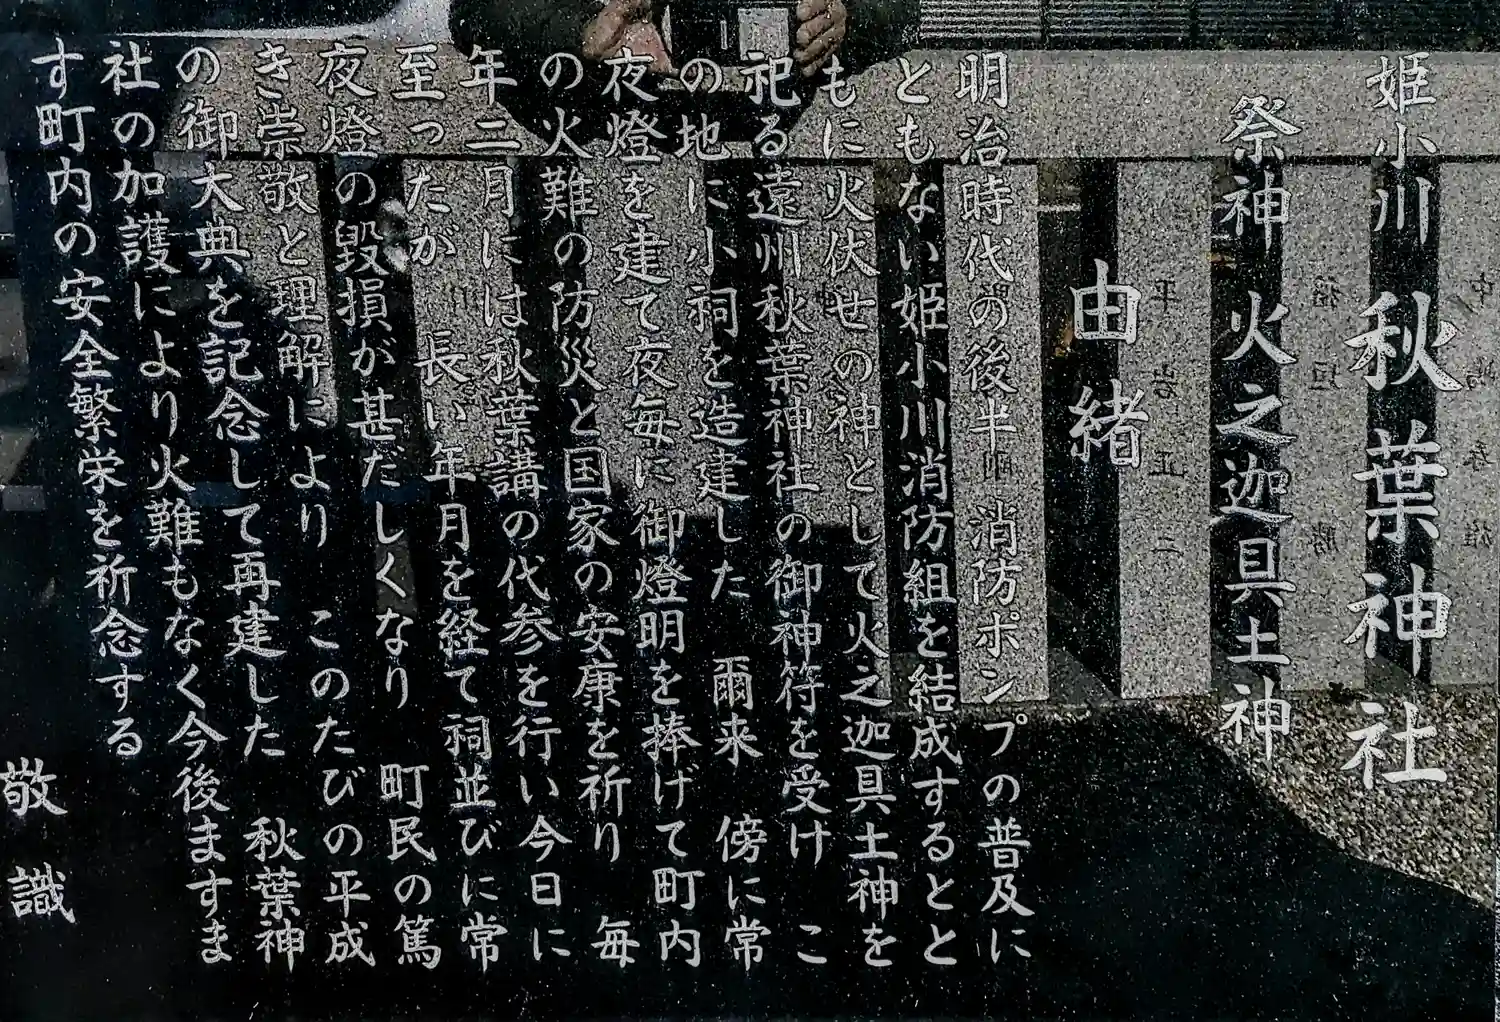 姫小川 秋葉神社
祭神 火之迦具土神
由緒
明治時代の後半 消防ポンプの普及に
ともない姫小川消防組を結成するとと
もに火伏せの神として火之迦具土神を
祀る遠州秋葉神社の御神符を受け こ
の地に小祠を造建した 爾来 傍に常
夜燈を建て夜毎に御燈明を捧げて町内
の火難の防災と国家の安康を祈り 毎
年二月には秋葉講の代参を行い今日に
至ったが 長い年月を経て祠並びに常
夜燈の毀損が甚だしくなり 町民の篤
き崇敬と理解により このたびの平成
の御大典を記念して再建した 秋葉神
社の加護により火難もなく今後ますま
す町内の安全繁栄を祈念する
敬識